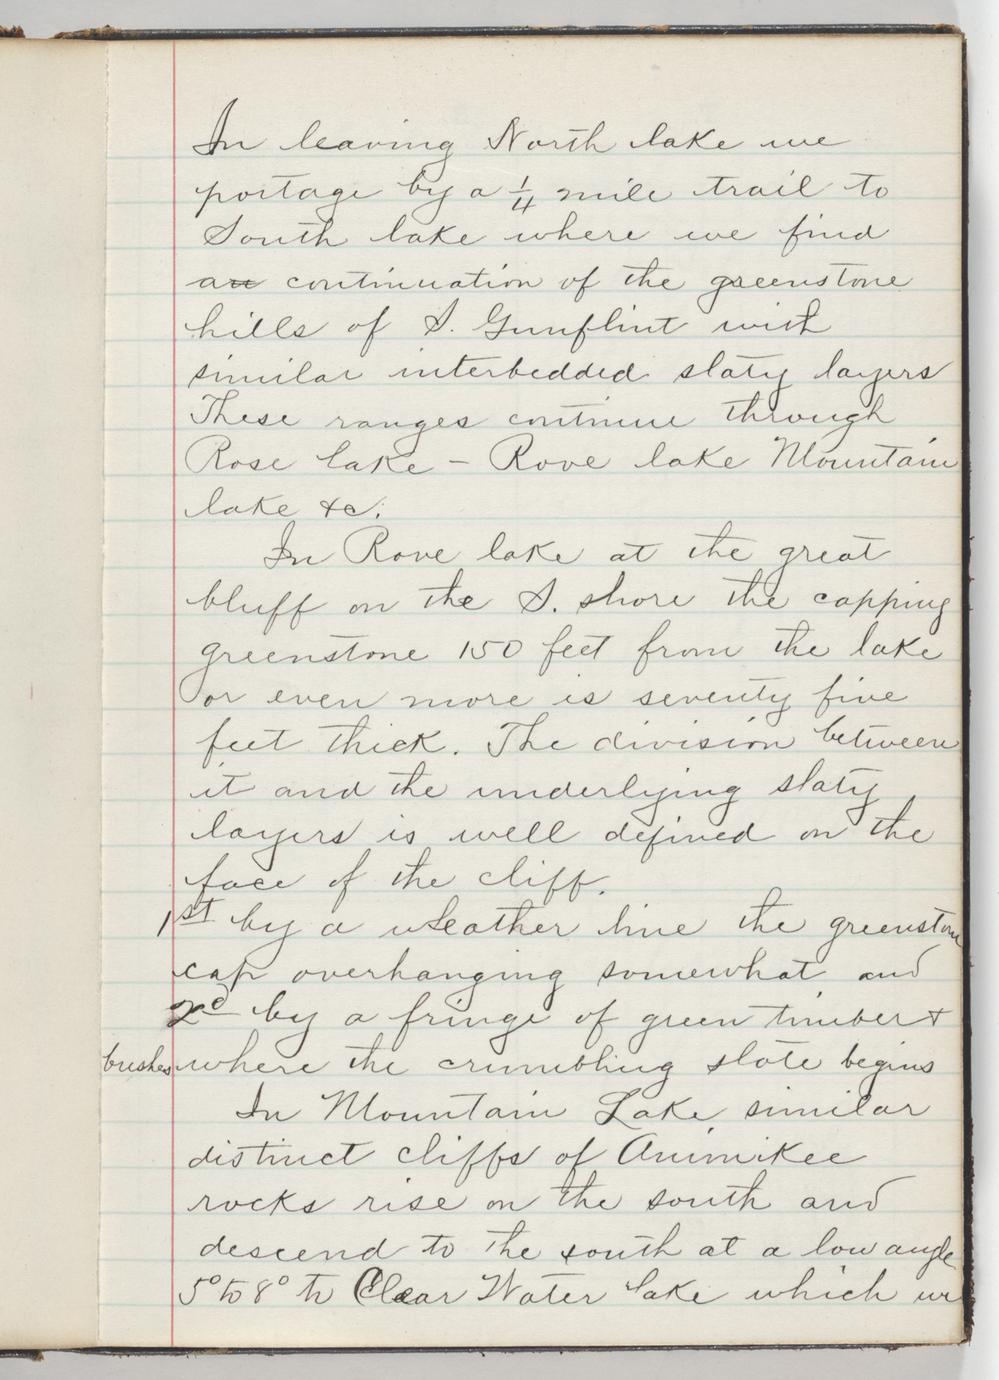 In leaving North lake we
portage by a 1/4 mile trail to
South lake where we find
an continuation of the greenstone
hills of S. Gunflint with
similar interbedded slaty layers
These ranges continue through
Rose lake – Rove lake Mountain
lake &c.
In Rove lake at the great
bluff on the S. shore the capping
greenstone 150 feet from the lake
or even more is seventy five
feet thick. The division between
it and the underlying slaty
layers is well defined on the
face of the cliff.
1st by a weather line the greenstone
cap overhanging somewhat and
2d by a fringe of green timber &
bushes where the crumbling slate begins
In Mountain Lake, similar
distinct cliffs of Animikee
rocks rise on the south and
descend to the south at a low angle
5° to 8° to Clear Water lake which we